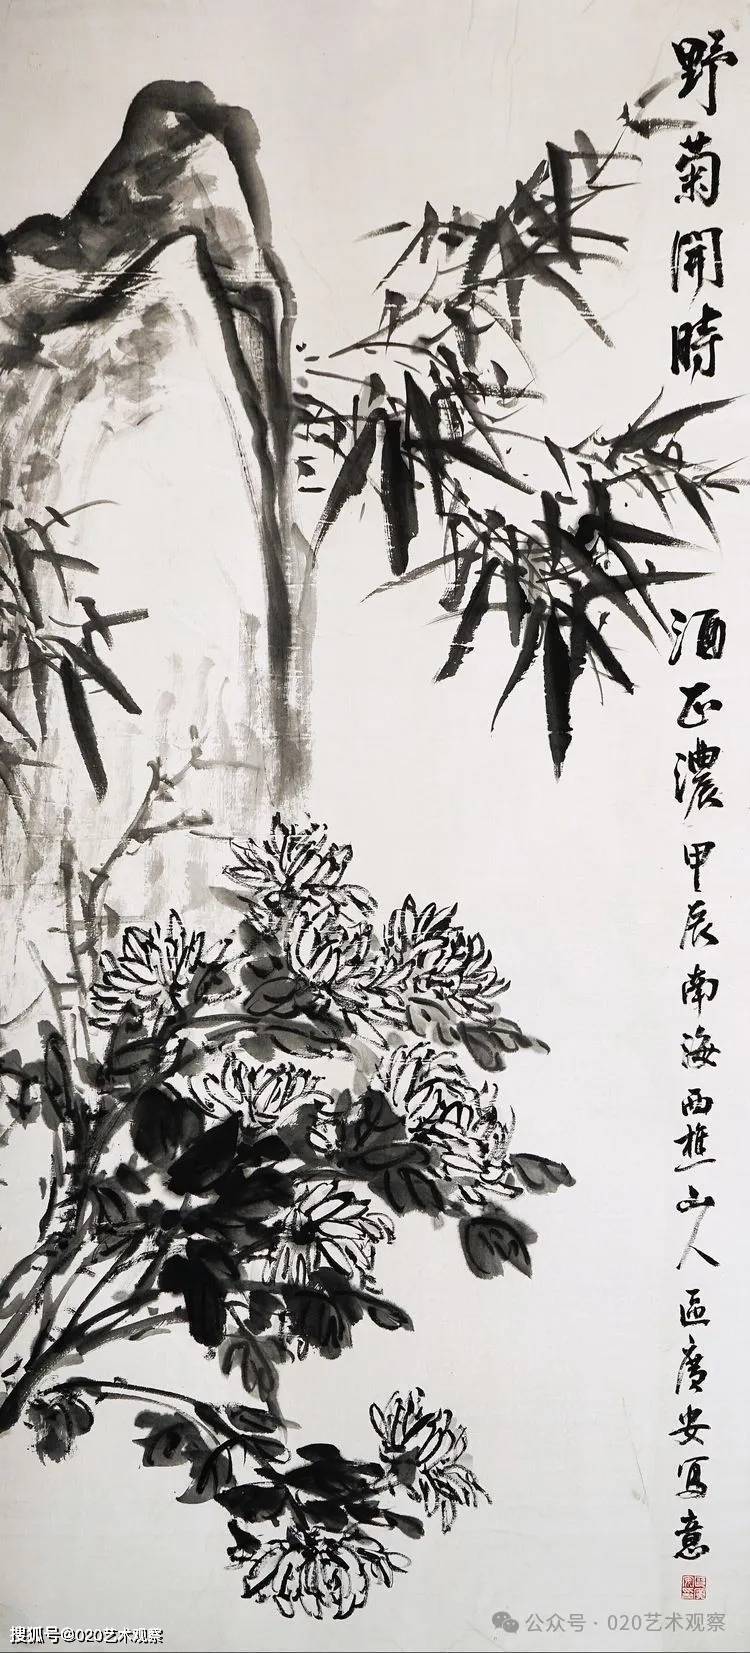 野菊開時酒正濃甲辰南海西樵山人區廣安寫意
搜狐号@020艺术观察
公众号·020艺术观察